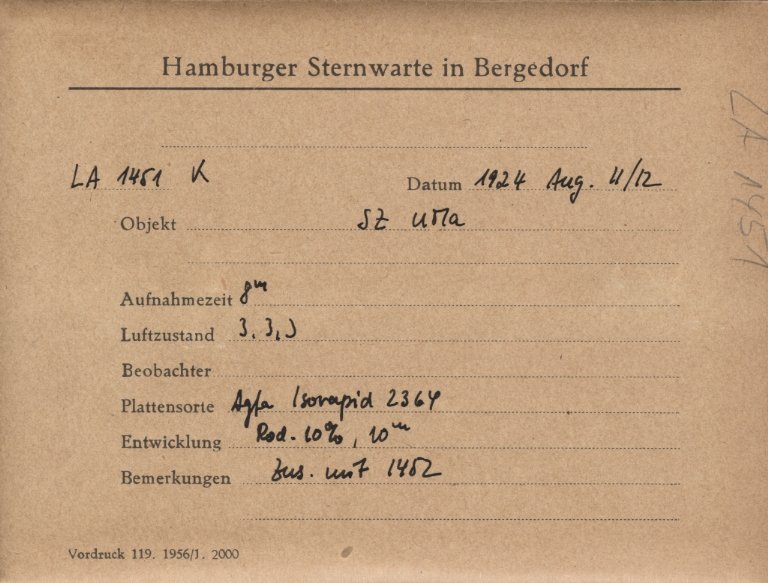 Hamburger Sternwarte in Bergedorf
LA 1451 K
Datum 1924 Aug. 11/12
Objekt SZ UMa
Aufnahmezeit 8m
Luftzustand 3, 3,
Beobachter
Plattensorte Agfa Isorapid 2364
Entwicklung Rod. 10%, 10m
Bemerkungen Zus. mit 1452
Vordruck 119. 1956/1. 2000
LA 1451